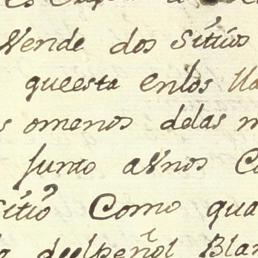 Vende dos Sitios
queesta enlos
omenos delas
Junto aʋnos
sitiō Como qua
delpeñol Blan